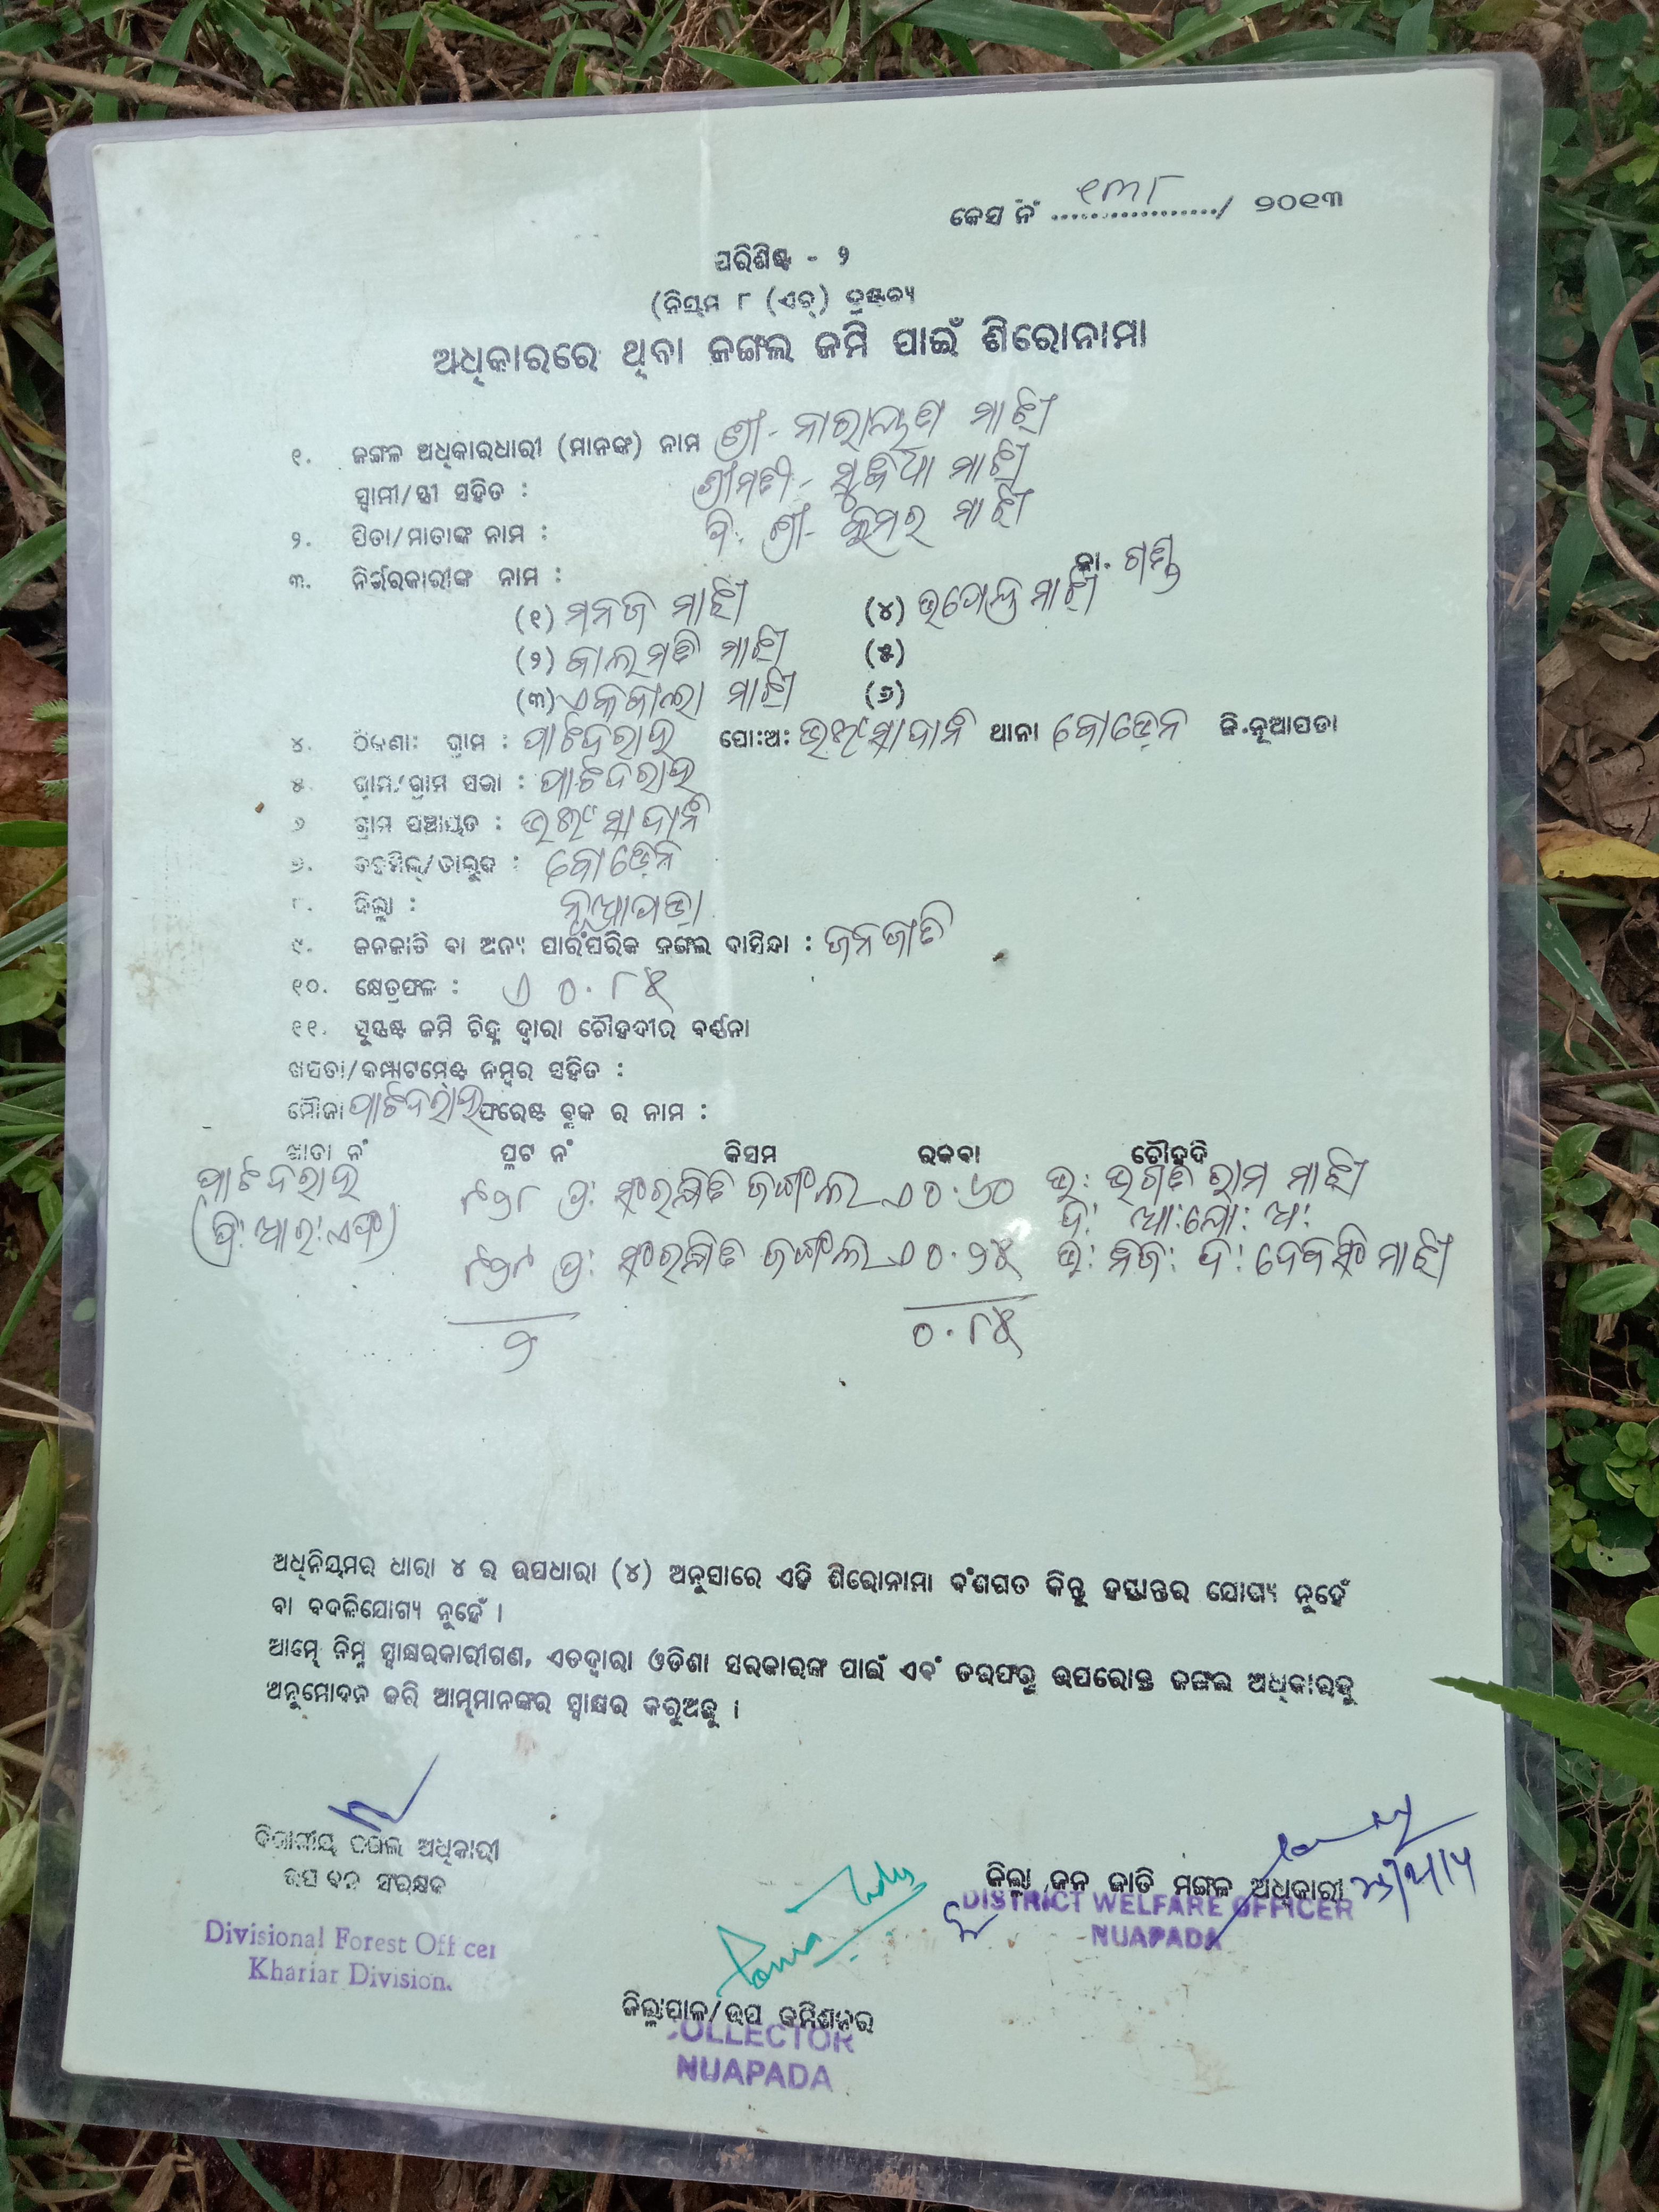 କେସ ନଂ ୧୩୮ / ୨୦୧୩
ପରିଶିଷ୍ଟ - ୨
(ନିୟମ ୮ (ଏଚ୍) ଦ୍ରଷ୍ଟବ୍ୟ
ଅଧିକାରରେ ଥିବା ଜଙ୍ଗଲ ଜମି ପାଇଁ ଶିରୋନାମା
୧. ଜଙ୍ଗଳ ଅଧିକାରଧାରୀ (ମାନଙ୍କ) ନାମ ଶ୍ରୀ- ନାରାୟଣ ମାଝୀ
ସ୍ୱାମୀ/ସ୍ତ୍ରୀ ସହିତ : ଶ୍ରୀମତୀ- ମାଝୀ
୨. ପିତା/ମାତାଙ୍କ ନାମ : ପି: ଶ୍ରୀ- ମାଝୀ
୩. ନିର୍ଭରକାରୀଙ୍କ ନାମ : ଜା. ଗଣ୍ଡ
(୧) ମନଜ ମାଝୀ (୪) ମାଝୀ
(୨) ମାଝୀ (୫)
(୩) ମାଝୀ (୬)
୪. ଠିକଣା: ଗ୍ରାମ : ପାଟଦରାହ ପୋ:ଅ: ଥାନା ବୋଡେନ ଜି.ନୂଆପଡା
୫ ଗ୍ରାମ/ଗ୍ରାମ ସଭା : ପାଟଦରାହ
୬ ଗ୍ରାମ ପଞ୍ଚାୟତ :
୭. ତହସିଲ୍/ତାଲୁକ : ବୋଡେନ
୮. ଜିଲ୍ଲା : ନୂଆପଡା
୯. ଜନଜାତି ବା ଅନ୍ୟ ପାରଂପରିକ ଜଙ୍ଗଲ ବାସିନ୍ଦା : ଜନଜାତି
୧୦. କ୍ଷେତ୍ରଫଳ : ଏ ୦.୮୫
୧୧. ସୁସ୍ପଷ୍ଟ ଜମି ଚିହ୍ନ ଦ୍ୱାରା ଚୌହଦୀର ବର୍ଣ୍ଣନା
ଖସଡା/କମ୍ପାଟମେଣ୍ଟ ନମ୍ବର ସହିତ :
ମୌଜା ପାଟଦରାହ ଫରେଷ୍ଟ ବ୍ଲକ ର ନାମ :
ଖାତା ନଂ ପ୍ଲଟ ନଂ କିସମ ରକବା ଚୌହଦି
ପାଟଦରାହ ୯୨୮ ପ୍ର: ସଂରକ୍ଷିତ ଜଙ୍ଗଲ ଏ ୦.୬୦ ଉ: ଭଗତ ରାମ ମାଝୀ
(ପି: ଆର: ଏଫ) ଦ:
୯୨୯ ପ୍ର: ସଂରକ୍ଷିତ ଜଙ୍ଗଲ ଏ ୦.୨୫ ଉ: ନିଜ: ଦ: ଦେବସିଂ ମାଝୀ
୨ ୦.୮୫
ଅଧିନିୟମର ଧାରା ୪ ର ଉପଧାରା (୪) ଅନୁସାରେ ଏହି ଶିରୋନାମା ବଂଶଗତ କିନ୍ତୁ ହସ୍ତାନ୍ତର ଯୋଗ୍ୟ ନୁହେଁ
ବା ବଦଳିଯୋଗ୍ୟ ନୁହେଁ ।
ଆମ୍ଭେ ନିମ୍ନ ସ୍ୱାକ୍ଷରକାରୀଗଣ, ଏତଦ୍ୱାରା ଓଡିଶା ସରକାରଙ୍କ ପାଇଁ ଏବଂ ତରଫରୁ ଉପରୋକ୍ତ ଜଙ୍ଗଲ ଅଧିକାରକୁ
ଅନୁମୋଦନ କରି ଆମ୍ଭମାନଙ୍କର ସ୍ୱାକ୍ଷର କରୁଅଛୁ ।
ବିଭାଗୀୟ ଜଙ୍ଗଲ ଅଧିକାରୀ
ଉପ ବନ ସଂରକ୍ଷକ
Divisional Forest Officer
Khariar Division.
ଜିଲ୍ଲା ଜନ ଜାତି ମଙ୍ଗଳ ଅଧିକାରୀ
DISTRICT WELFARE OFFICER
NUAPADA
ଜିଲ୍ଲାପାଳ/ଉପ କମିଶନର
COLLECTOR
NUAPADA